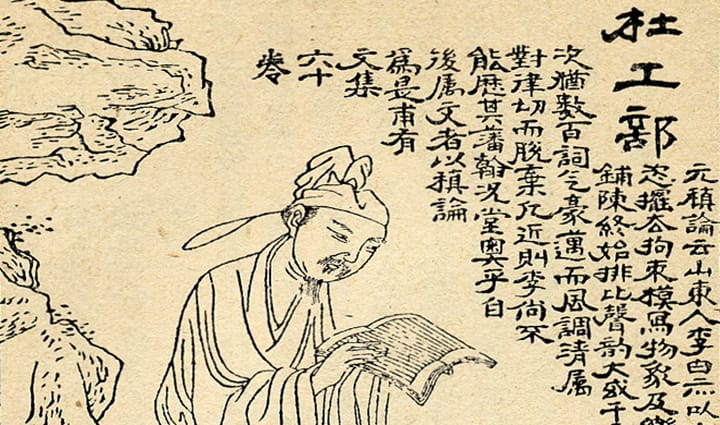 杜工部
元稹論云山東人李白亦以
恣擺去拘束模寫物象及樂
鋪陳終始排比聲韵大或千
次猶數百詞气豪邁而風調清属
對律切而脫棄凡近則李尚不
能歷其藩翰况堂奧乎自
後属文者以稹論
爲是甫有
文集
六十
卷